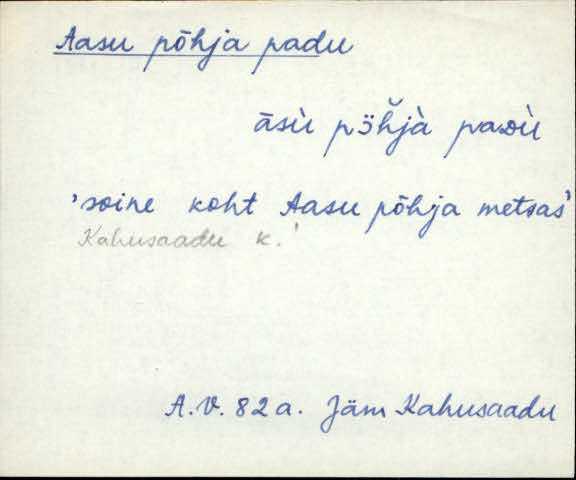 Aasu põhja padu
āsù pɜ̈h̆jà paᴅù
'soine koht Aasu põhja metsas'
Kahusaadu k.!
A.V. 82 a. Jäm Kahusaadu